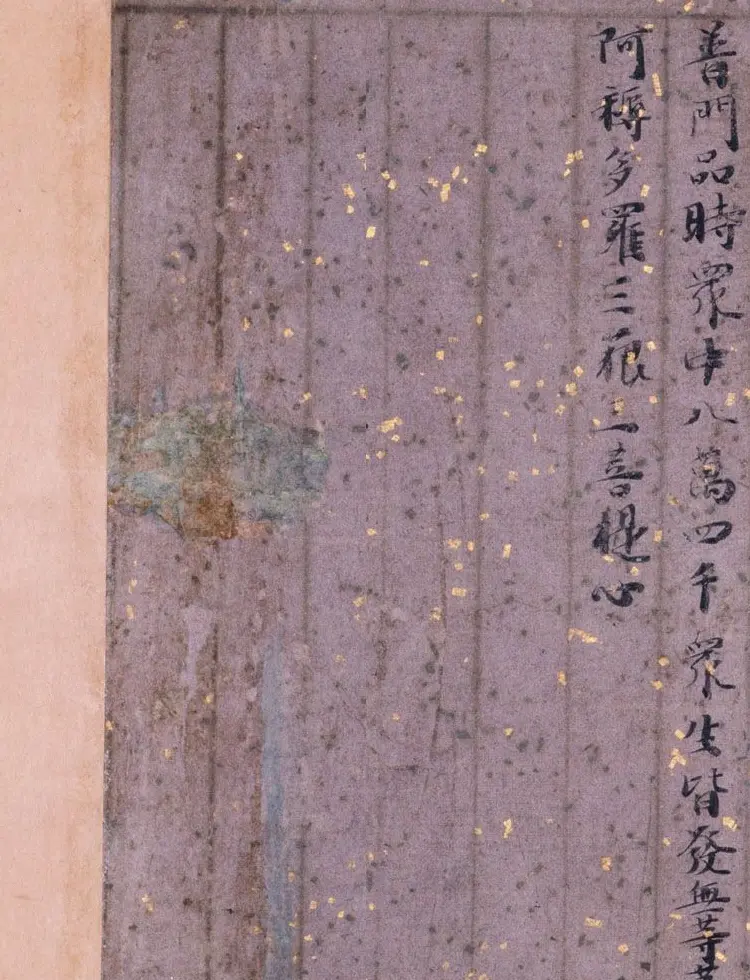 普門品時眾中八萬四千眾生皆發無等
阿耨多羅三藐三菩提心